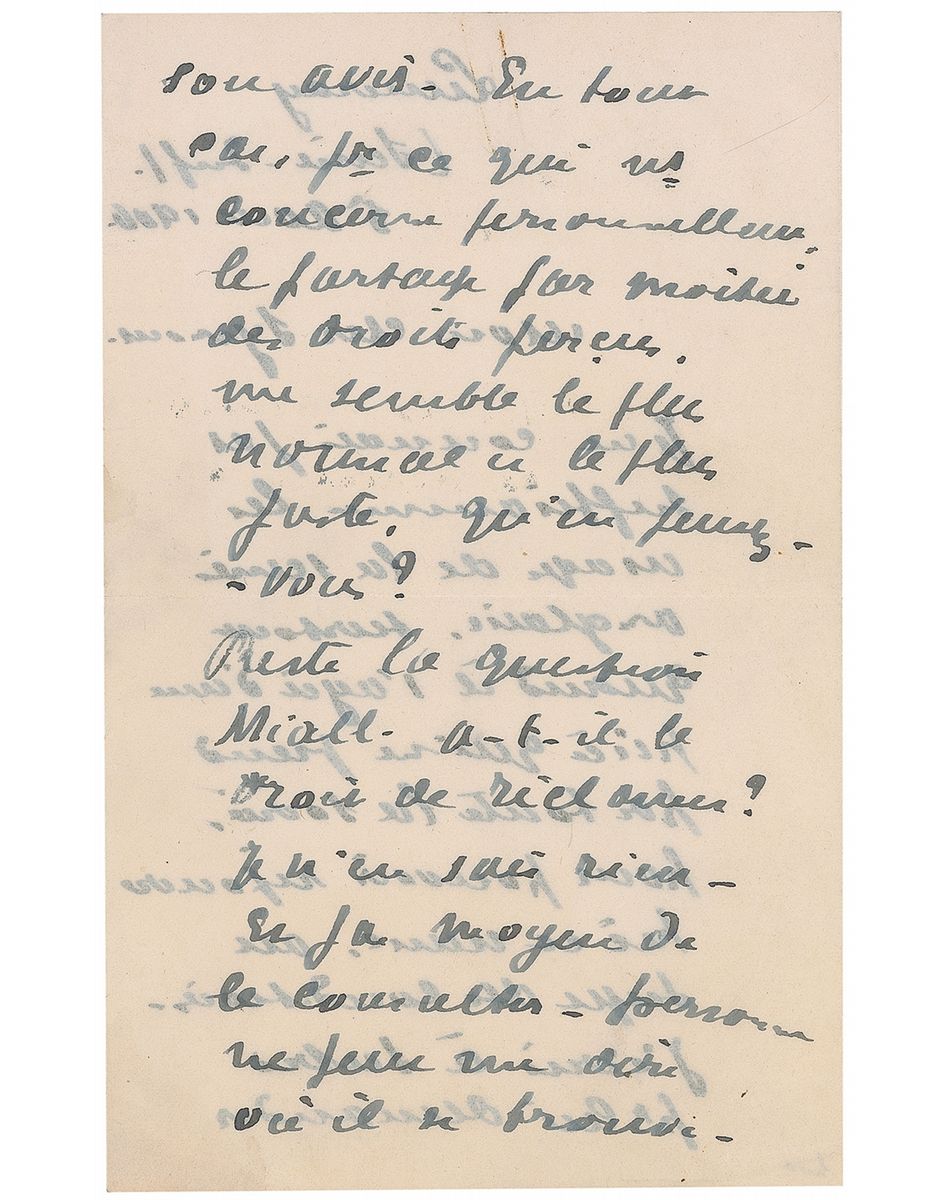 son avis - En tous
cas, pr ce qui ns
concerne personnellem.,
le partage par moitié
des droits perçus,
me semble le plus
normal et le plus
juste, qu'en pensez-
-vous ?
Reste la question
Miall. a-t-il le
droit de réclamer ?
Je n'en sais rien -
Et pas moyen de
le consulter - personne
ne peut me dire
où il se trouve -